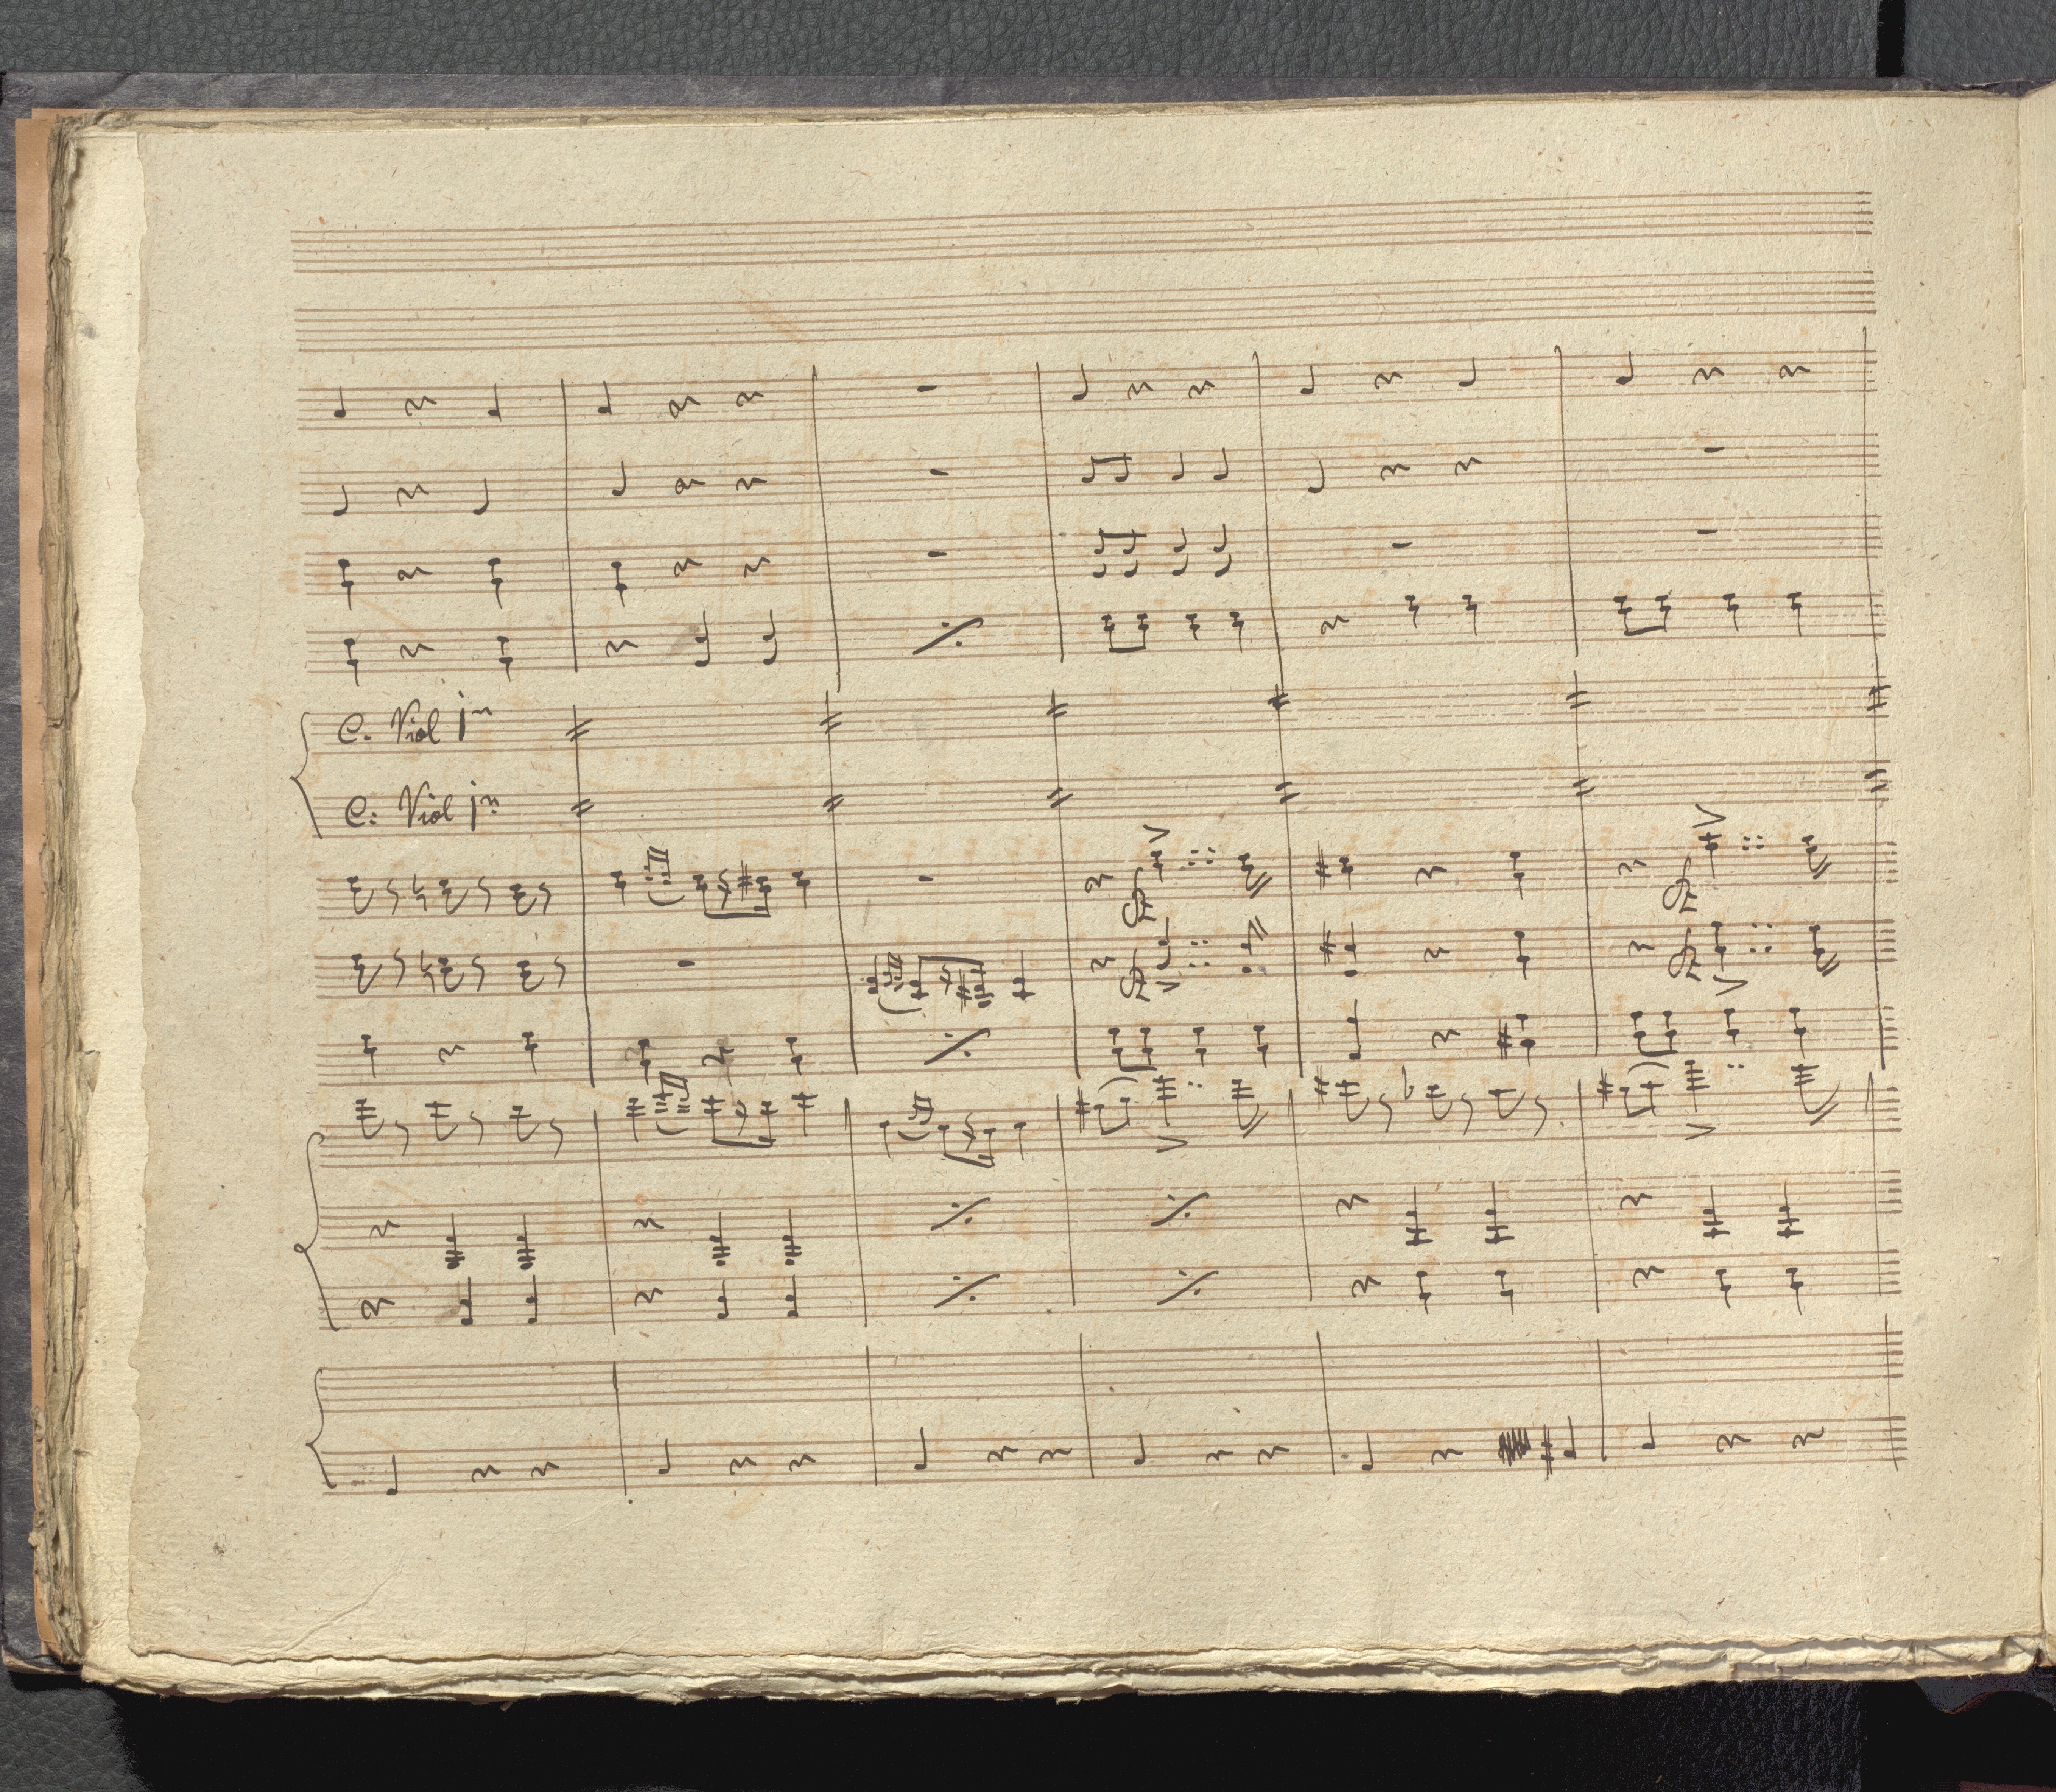 C. Viol 1º
C: Viol 1º